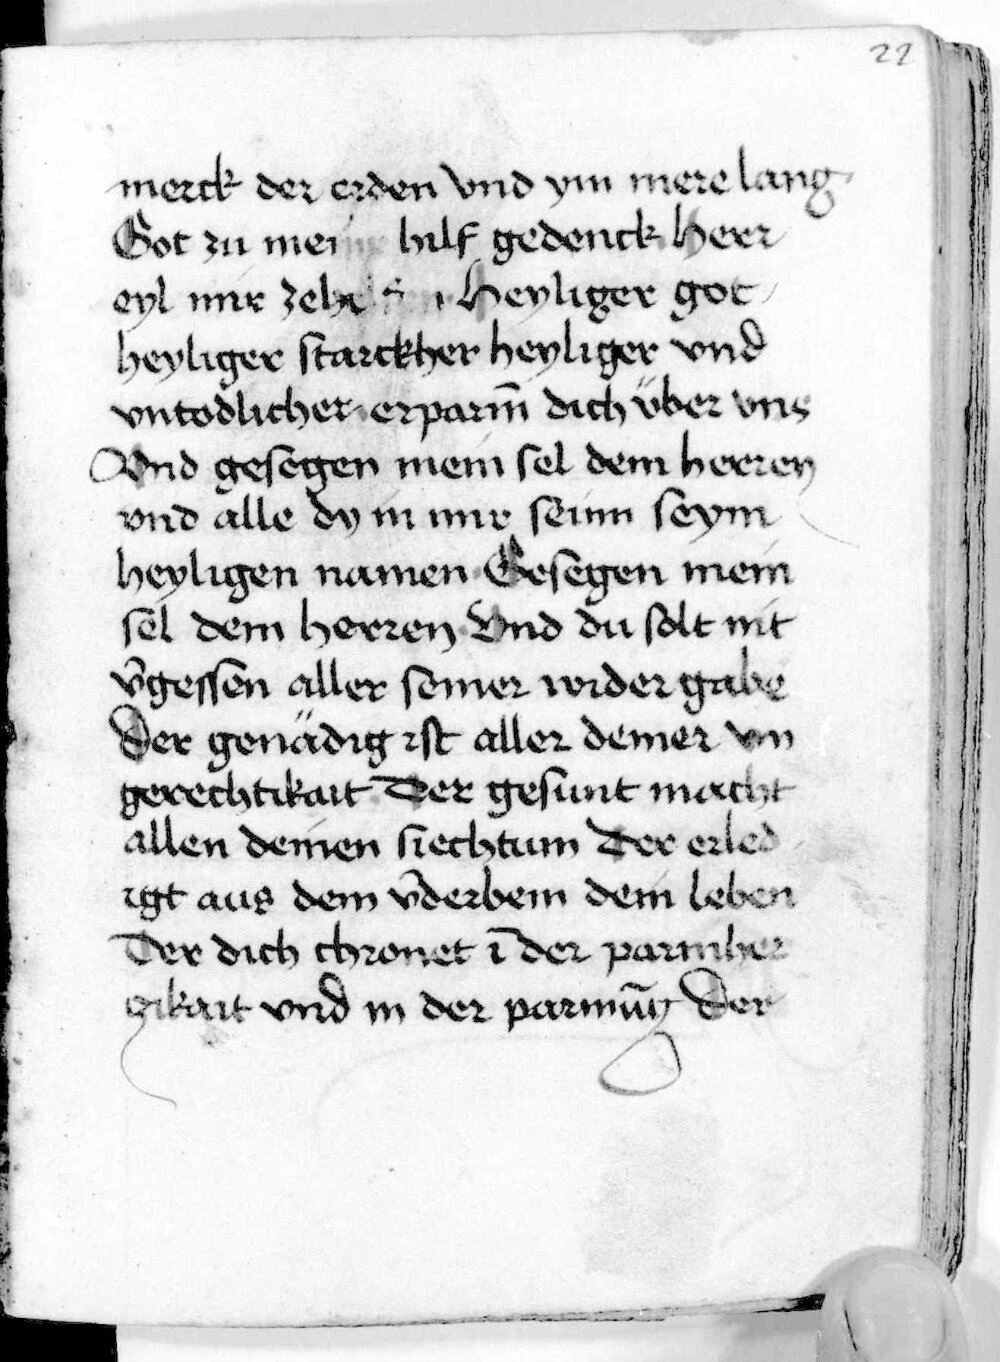 22
merck der erden vnd ym mere lang
Got zu mein hilf gedenck Herr
eyl mir Heyliger got
heyliger starckher heyliger vnd
vntodlicher erparm̄ dich über vns
Vnd gesegen mein sel dem herren
vnd alle dy in mir seinn seym
heyligen namen Gesegen mein
sel dem herren Vnd du solt nit
v̄gessen aller seiner wider gabe
Der genädig ist aller deiner vn
gerechtikait Der gesunt macht
allen deinen siechtum Der erled
igt aus dem v̄derbem dein leben
Der dich chronet ī der parmher
zikait vnd in der parmūg Der